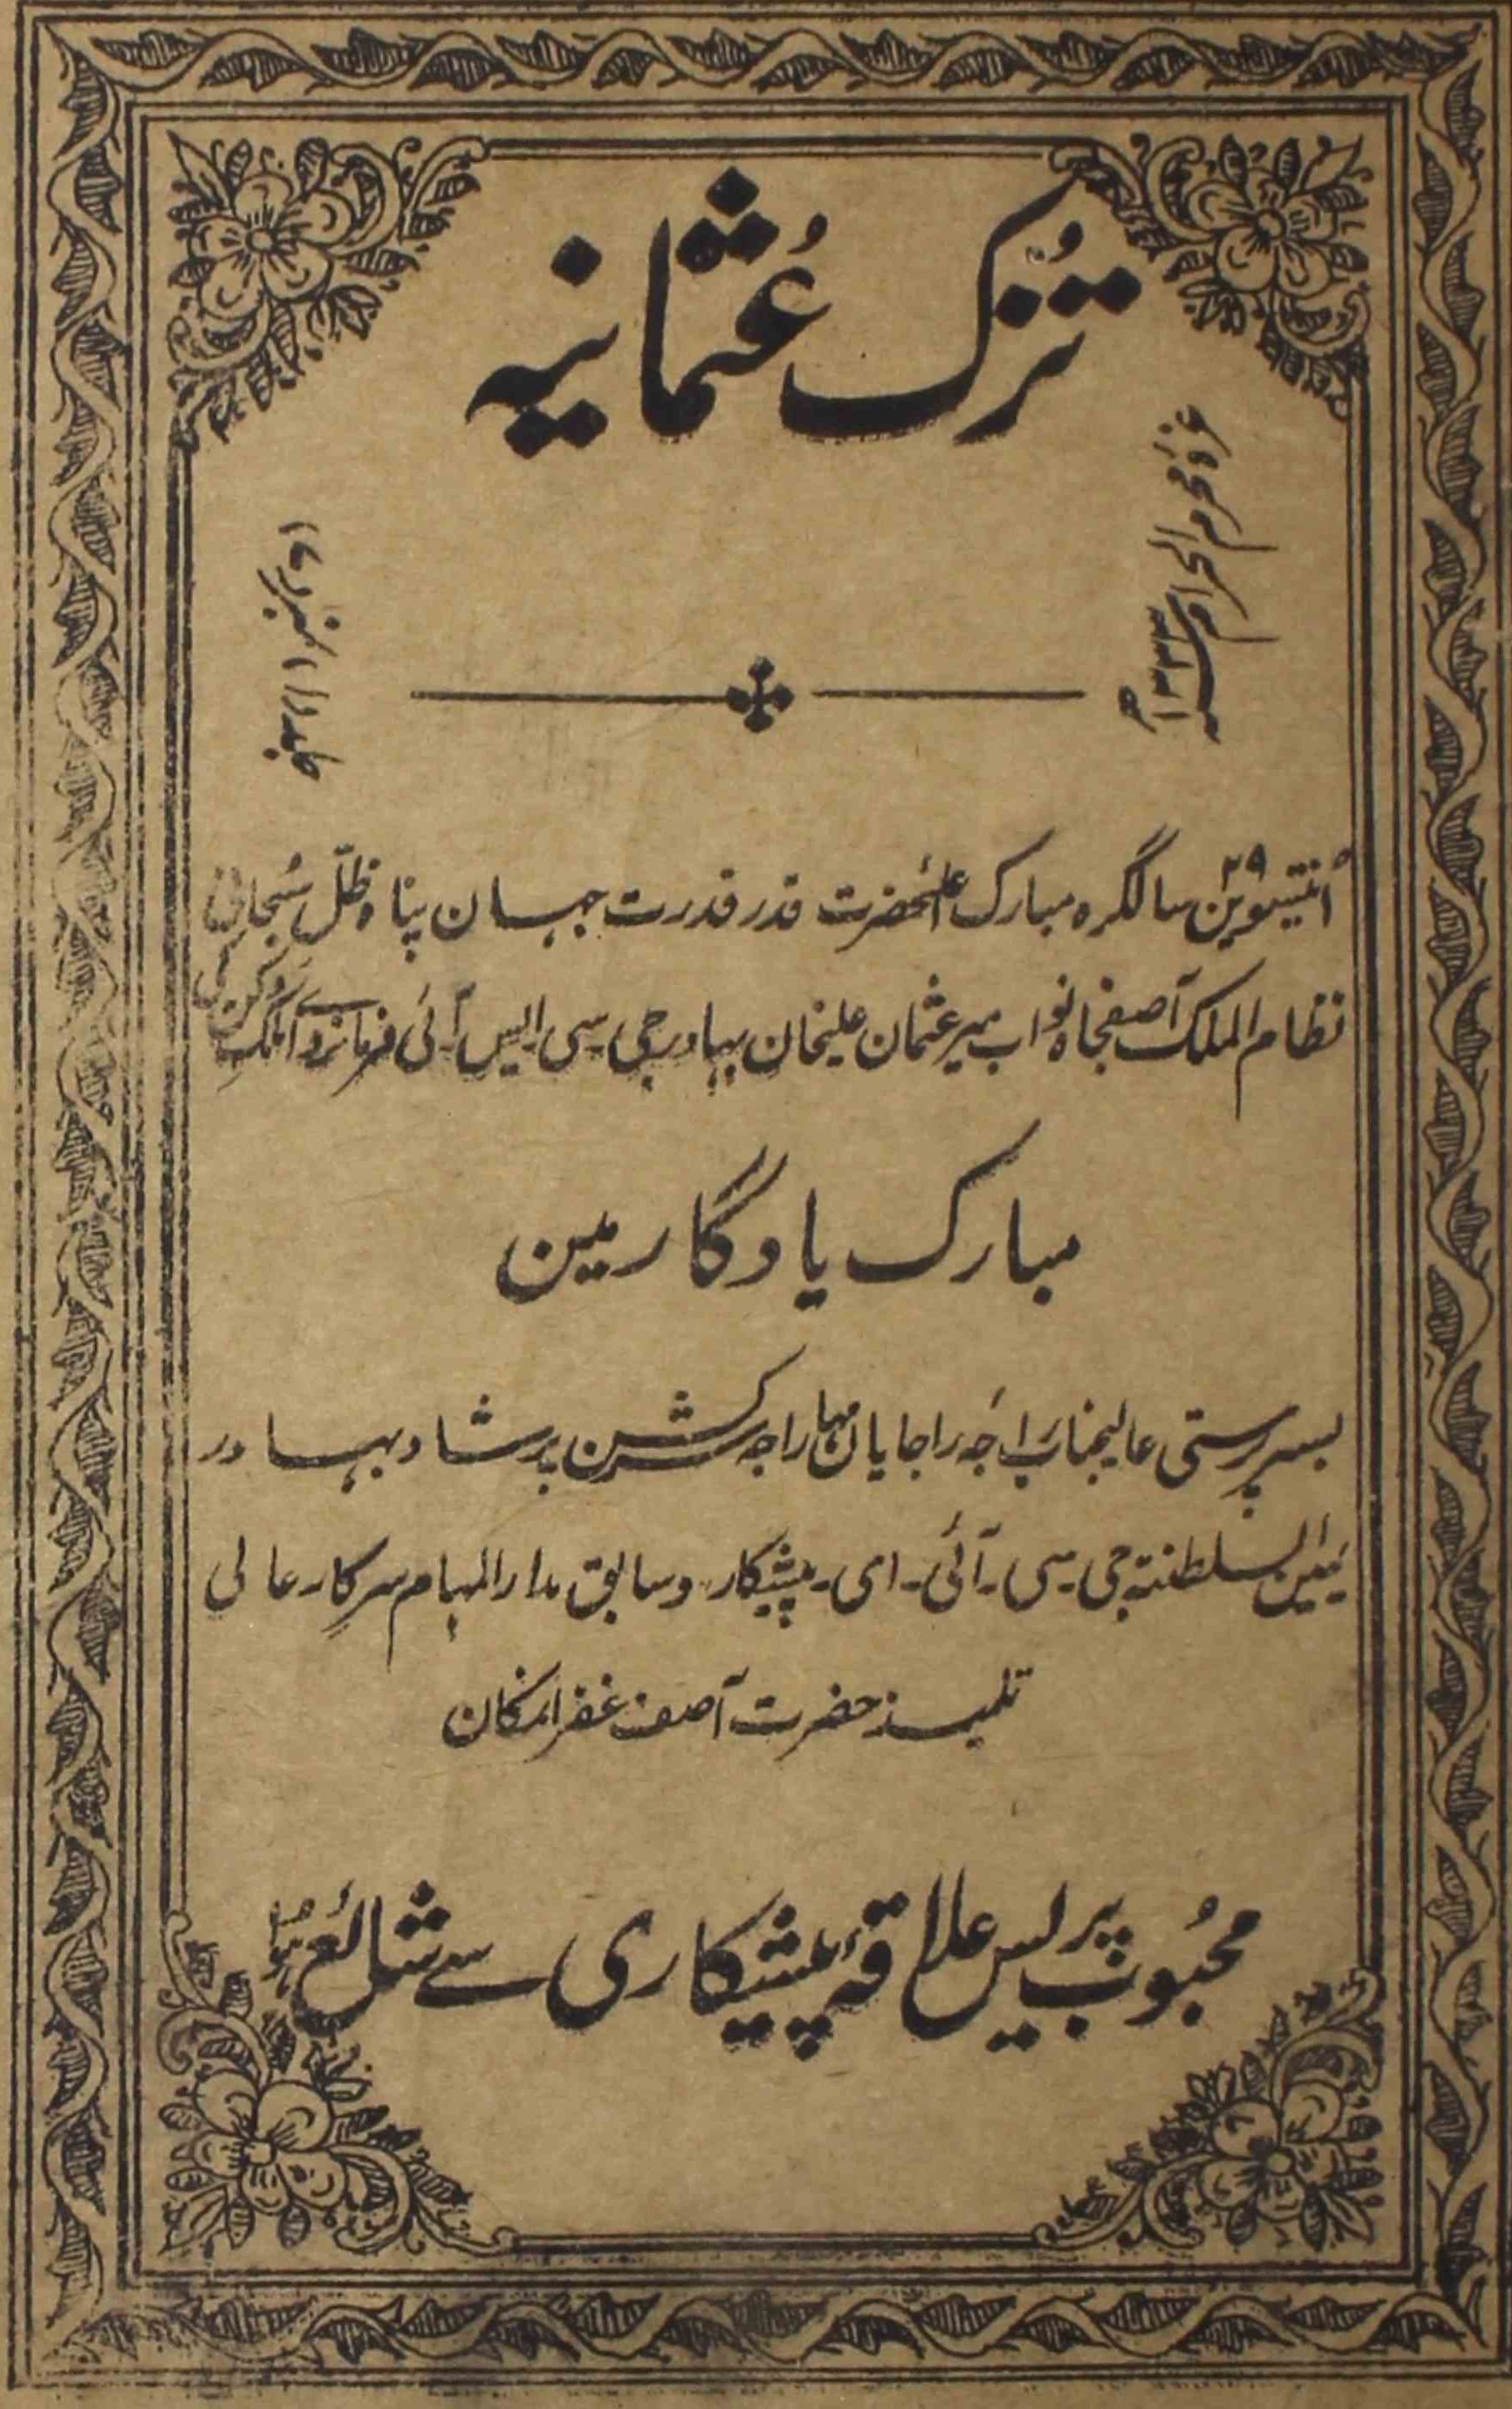 تُزک عُثمانیہ
غرۂ محرم الحرام ۱۳۳۳ھ
جلد (۱) نمبر (۱)
اُنتیسوین ۲۹ سالگرہ مبارک اعلٰحضرت قدر قدرت جہان پناہ ظلّ سُبحانی
نظام الملک آصفجاہ نواب میر عثمان علیخان بہادر جی۔سی۔ایس۔آئی فرمانروائے ملک دکن کی
مبارک یادگار مین
بسرپرستی عالیجناب راجۂ راجایان مہاراجہ سرکشن پرشاد بہادر
یمین السلطنتہ جی۔سی۔آئی۔ای۔پیشکار وسابق مدارالمہام سرکارعالی
تلمیذ حضرت آصف غفرانمکان
محبُوب پریس علاقۂ پیشکاری سے شائع ہوا